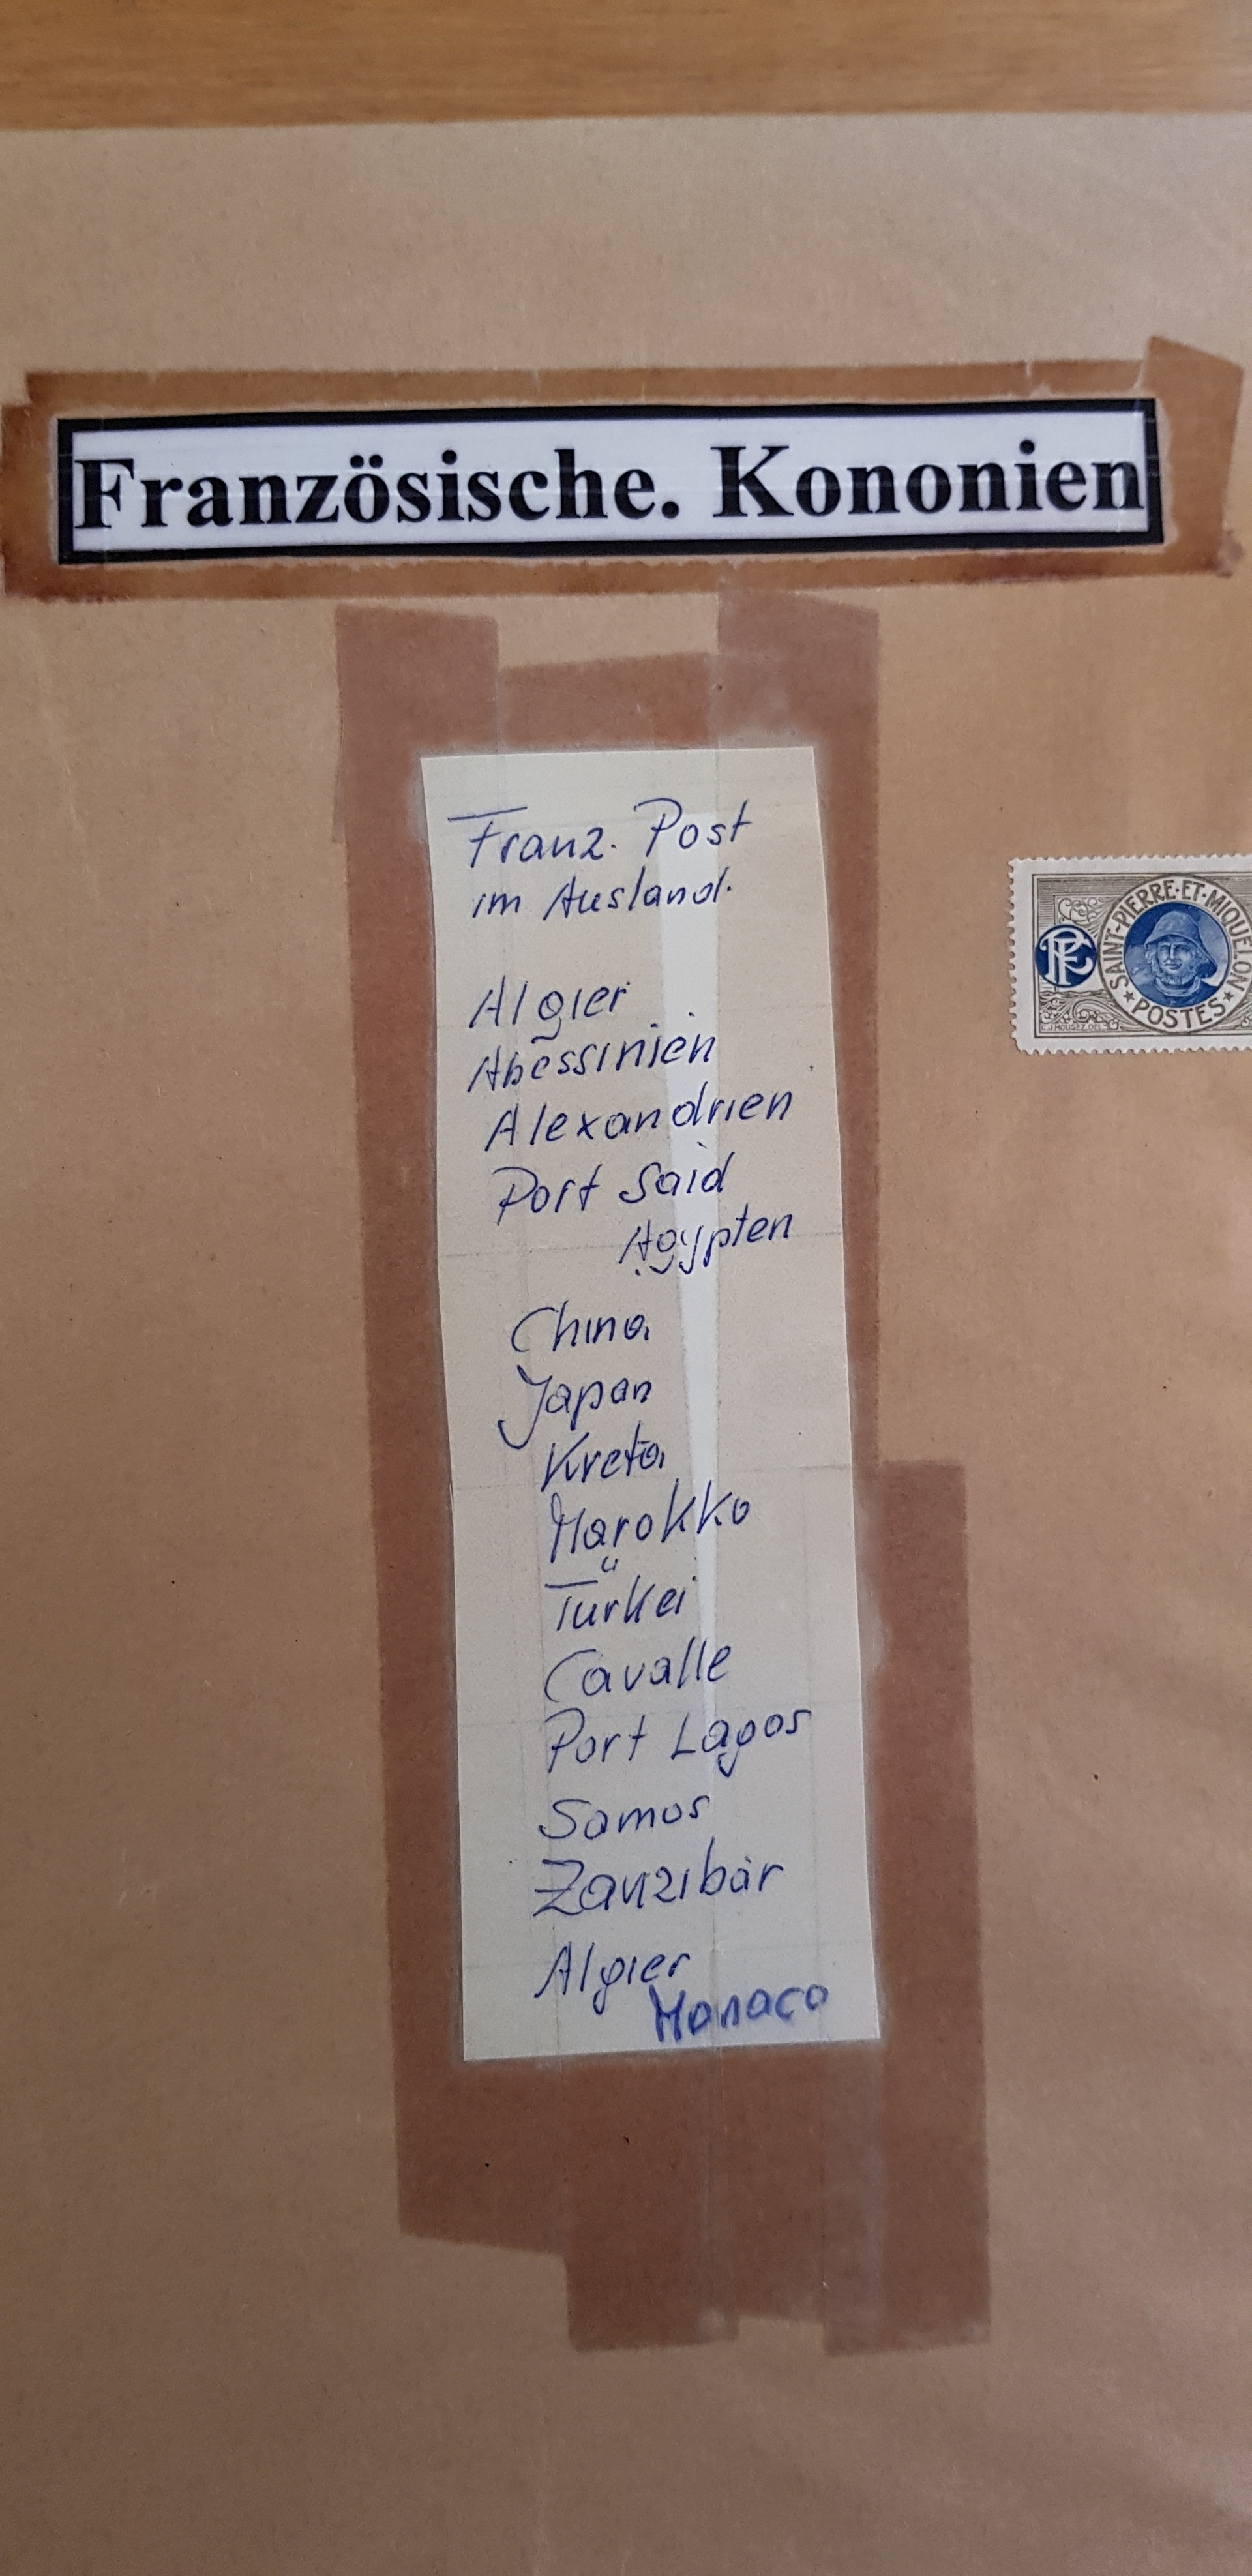 Französische. Kononien
Franz. Post
im Ausland.
Algier
Abessinien
Alexandrien
Port Said
Ägypten
China
Japan
Kreta
Marokko
Türkei
Cavalle
Port Lagos
Samos
Zanzibar
Algier
Monaco
SAINT-PIERRE-ET-MIQUELON
POSTES